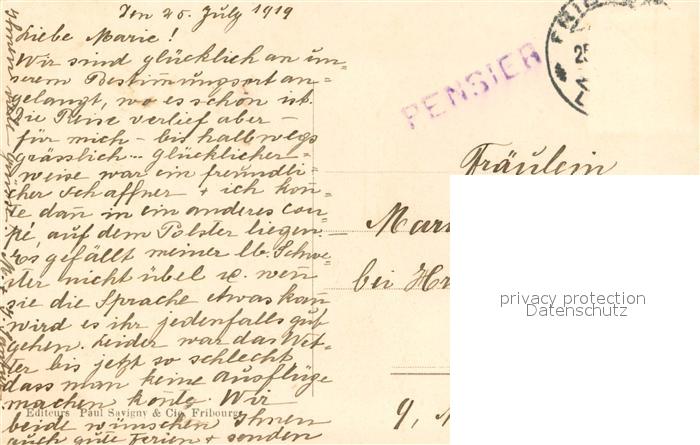 Den 25. July 1919
Liebe Marie!
Wir sind glücklich an un=
serem Bestimmungsort an=
gelangt, wo es schön ist.
Die Reise verlief aber –
für mich – bis halbwegs
grässlich... glücklicher=
weise war ein freundli=
cher Schaffner + ich kon̄=
te dan̄ in ein anderes Cou=
pé, auf dem Polster liegen. –
Es gefällt meiner lb. Schwe=
ster nicht übel u. wen̄
sie die Sprache etwas kan̄
wird es ihr jedenfalls gut
gehen. Leider war das Wet=
ter bis jetzt so schlecht
dass man keine Ausflüge
machen kon̄te. Wir
beide wünschen Ihnen
auch gute Ferien + senden
Editeurs Paul Savigny & Cie, Fribourg
PENSIER
FRIB
25
Fräulein
Mari
bei Hr
9,
privacy protection
Datenschutz